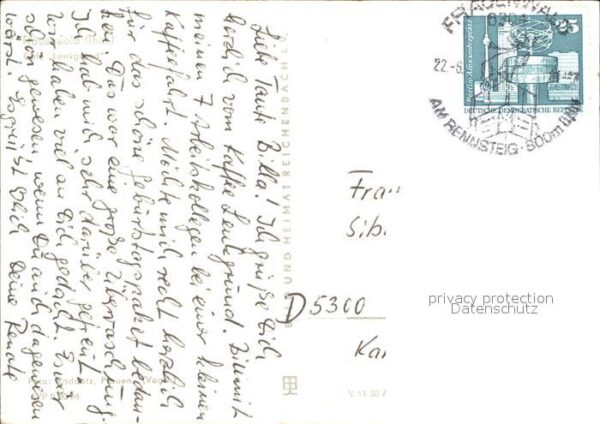 Liebe Tante Billa! Ich grüße Dich
herzlich vom Kaffee Lenkgrund. Bin mit
meinen 7 Arbeitskollegen bei einer kleinen
Kaffeefahrt. Möchte mich recht herzlich
für das schöne Geburtstagspaket bedan-
ken. Das war eine große Überraschung.
Ich hab mich sehr darüber gefreut.
Wir haben viel an Dich gedacht. Es wär
schön gewesen, wenn Du auch dagewesen
wärst. Es grüßt Dich Deine Renate
UND HEIMAT REICHENBACH I. V.
V 11 50 A
FRAUENWALD
6304
22.-6.
AM RENNSTEIG · 800m ü.NN
Berlin, Alexanderplatz
25
DEUTSCHE DEMOKRATISCHE REP
Frau
Sib
D 5300
Ka
privacy protection
Datenschutz